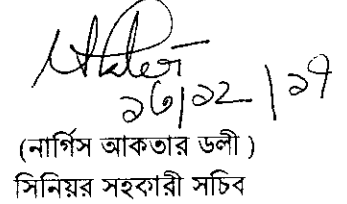 ২৬|১২|১৭
(নার্গিস আকতার ডলী )
সিনিয়র সহকারী সচিব